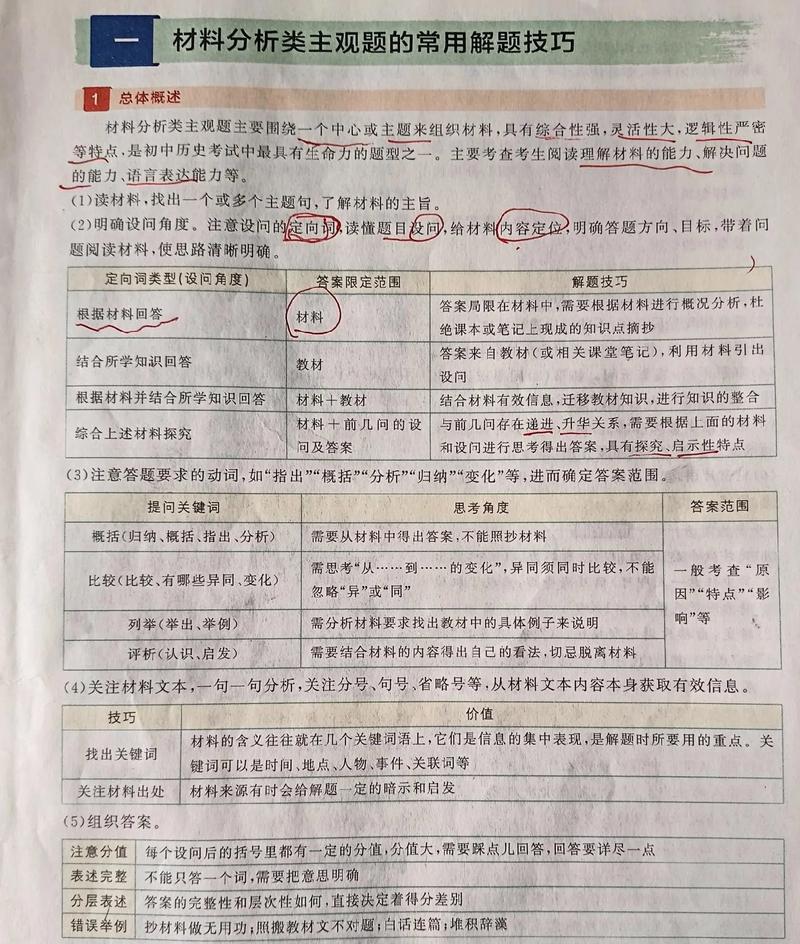 一 材料分析类主观题的常用解题技巧
1 总体概述
材料分析类主观题主要围绕一个中心或主题来组织材料,具有综合性强,灵活性大,逻辑性严密
等特点,是初中历史考试中最具有生命力的题型之一。主要考查考生阅读理解材料的能力、解决问题
的能力、语言表达能力等。
(1)读材料,找出一个或多个主题句,了解材料的主旨。
(2)明确设问角度。注意设问的定向词,读懂题目设问,给材料内容定位,明确答题方向、目标,带着问
题阅读材料,使思路清晰明确。
定向词类型(设问角度) 答案限定范围 解题技巧
根据材料回答 材料 答案局限在材料中,需要根据材料进行概况分析,杜
绝课本或笔记上现成的知识点摘抄
结合所学知识回答 教材 答案来自教材(或相关课堂笔记),利用材料引出
设问
根据材料并结合所学知识回答 材料+教材 结合材料有效信息,迁移教材知识,进行知识的整合
综合上述材料探究 材料+前几问的设 与前几问存在递进、升华关系,需要根据上面的材料
问及答案 和设问进行思考得出答案,具有探究、启示性特点
(3)注意答题要求的动词,如“指出”“概括”“分析”“归纳”“变化”等,进而确定答案范围。
提问关键词 思考角度 答案范围
概括(归纳、概括、指出、分析) 需要从材料中得出答案,不能照抄材料
比较(比较、有哪些异同、变化) 需思考“从……到……的变化”,异同须同时比较,不能
忽略“异”或“同”
一般考查“原
因”“特点”“影
响”等
列举(举出、举例) 需分析材料要求找出教材中的具体例子来说明
评析(认识、启发) 需要结合材料的内容得出自己的看法,切忌脱离材料
(4)关注材料文本,一句一句分析,关注分号、句号、省略号等,从材料文本内容本身获取有效信息。
技巧 价值
找出关键词 材料的含义往往就在几个关键词语上,它们是信息的集中表现,是解题时所要用的重点。关
键词可以是时间、地点、人物、事件、关联词等
关注材料出处 材料来源有时会给解题一定的暗示和启发
(5)组织答案。
注意分值 每个设问后的括号里都有一定的分值,分值大,需要踩点儿回答,回答要详尽一点
表述完整 不能只答一个词,需要把意思明确
分层表述 答案的完整性和层次性如何,直接决定着得分差别
错误举例 抄材料做无用功;照搬教材文不对题;白话连篇;堆积辞藻